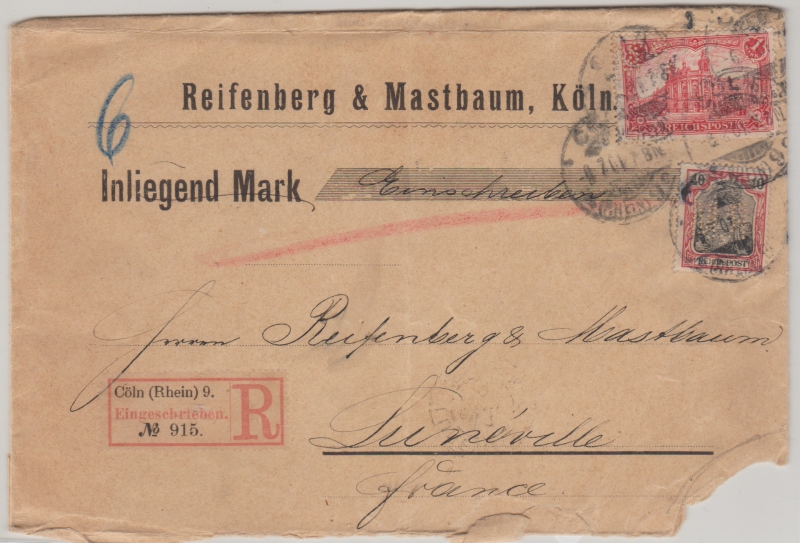 6
Reifenberg & Mastbaum, Köln.
Inliegend Mark Einschreiben
Herren Reifenberg & Mastbaum
Lunéville
France
Cöln (Rhein) 9.
Eingeschrieben.
№ 915.
R
REICHSPOST